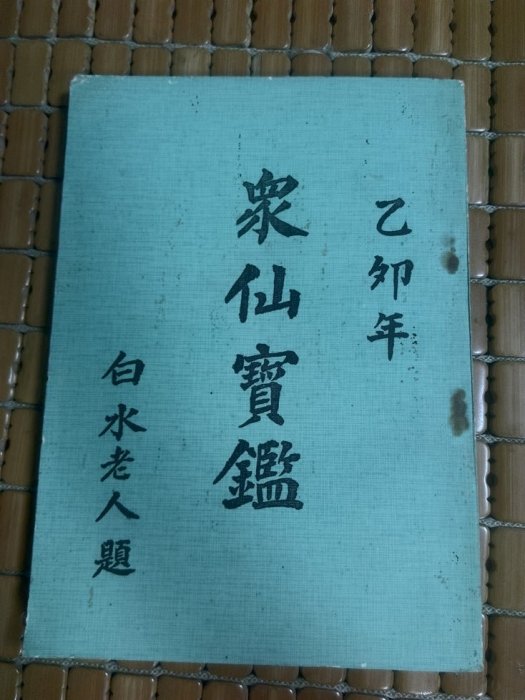 乙卯年
眾仙寶鑑
白水老人題